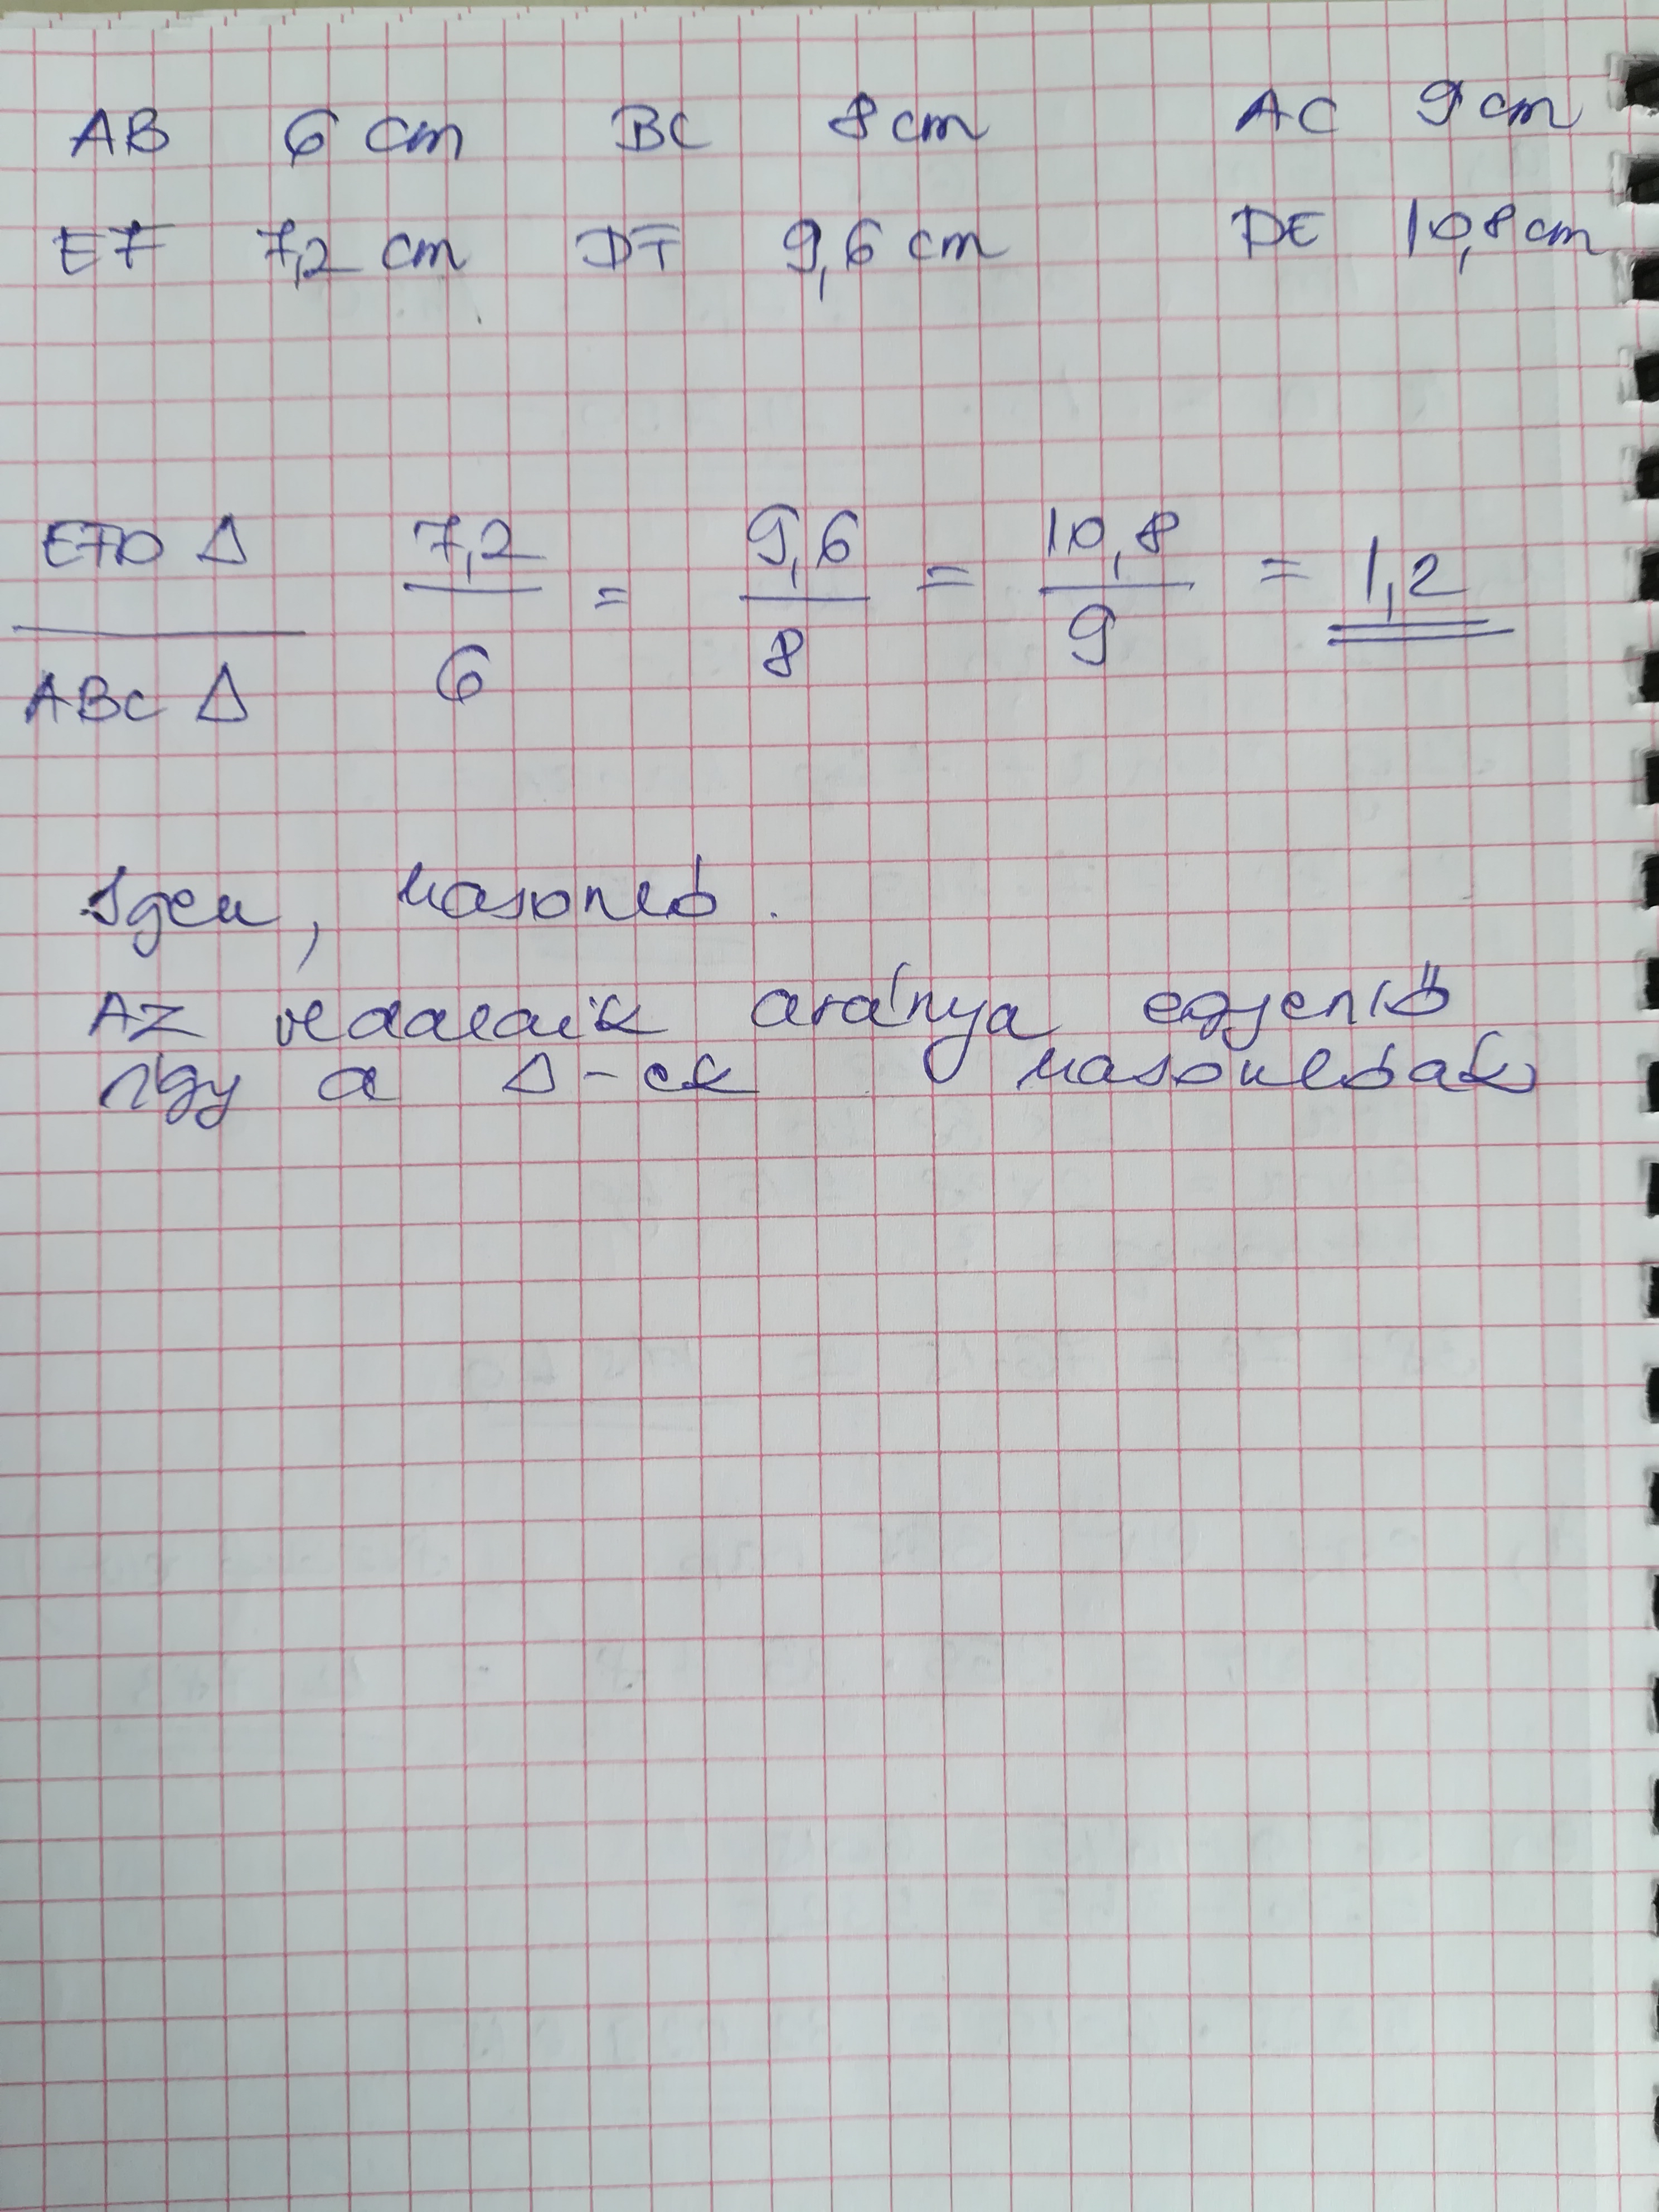 AB 6 cm BC 8 cm AC 9 cm
EF 7,2 cm DF 9,6 cm DE 10,8 cm
EFD Δ 7,2 = 9,6 = 10,8 = 1,2
ABC Δ 6 8 9
Igen, hasonló.
AZ oldalaik aránya egyenlő
így a Δ-ek hasonlóak